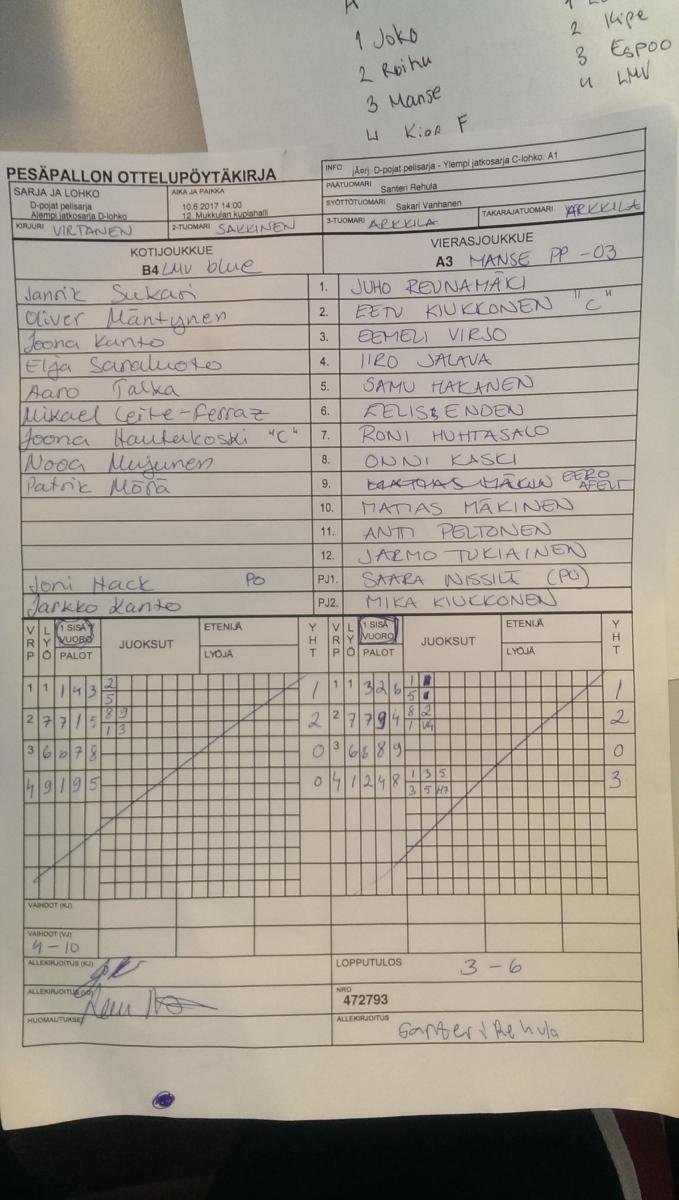 1 Joko
2 Roihu
3 Manse
4
2 Kipe
3 Espoo
4 LMV
PESÄPALLON OTTELUPÖYTÄKIRJA
INFO jÄarj. D-pojat pelisarja - Ylempi jatkosarja C-lohko: A1
SARJA JA LOHKO
D-pojat pelisarja
Alempi jatkosarja D-lohko
AIKA JA PAIKKA
10.6.2017 14:00
12. Mukkulan kuplahalli
PÄÄTUOMARI Santeri Rehula
SYÖTTÖTUOMARI Sakari Vanhanen
KIRJURI VIRTANEN
2-TUOMARI SAKKINEN
3-TUOMARI ARKKILA
TAKARAJATUOMARI ARKKILA
KOTIJOUKKUE
B4 LMV blue
VIERASJOUKKUE
A3 MANSE PP -03
Janrik Sukari 1. JUHO REUNAMÄKI
Oliver Mäntynen 2. EETU KIUKKONEN "C"
Joona Kanto 3. EEMELI VIRJO
Elja Saraluoto 4. IIRO JALAVA
Aaro Talka 5. SAMU HAKANEN
Mikael Leite-Ferraz 6. ENDEN
Joona Hauterkoski "C" 7. RONI HUHTASALO
Nooa Mujunen 8. ONNI KASKI
Patrik Mörä 9. EERO AFELT
10. MATIAS MÄKINEN
11. ANTTI PELTONEN
12. JARMO TUKIAINEN
Joni Hack PO PJ1. SAARA NISSILÄ (PO)
Jarkko Kanto PJ2. MIKA KIUKKONEN
VRP LYÖ 1 SISÄ VUORO PALOT JUOKSUT ETENIJÄ LYÖJÄ YHT VRP LYÖ 1 SISÄ VUORO PALOT JUOKSUT ETENIJÄ LYÖJÄ YHT
1 1 1 4 3 2/5 1 1 1 3 2 6 1/5 1
2 7 7 1 5 8/1 9/3 2 2 7 7 9 4 8/1 2/14 2
3 6 6 7 8 0 3 6 6 8 9 0
4 9 1 9 5 0 4 1 2 4 8 1/3 3/5 5/H7 3
VAIHDOT (KJ)
VAIHDOT (VJ)
4-10
ALLEKIRJOITUS (KJ)
LOPPUTULOS 3 - 6
ALLEKIRJOITUS (VJ)
NRO
472793
HUOMAUTUKSET
ALLEKIRJOITUS
Santeri Rehula